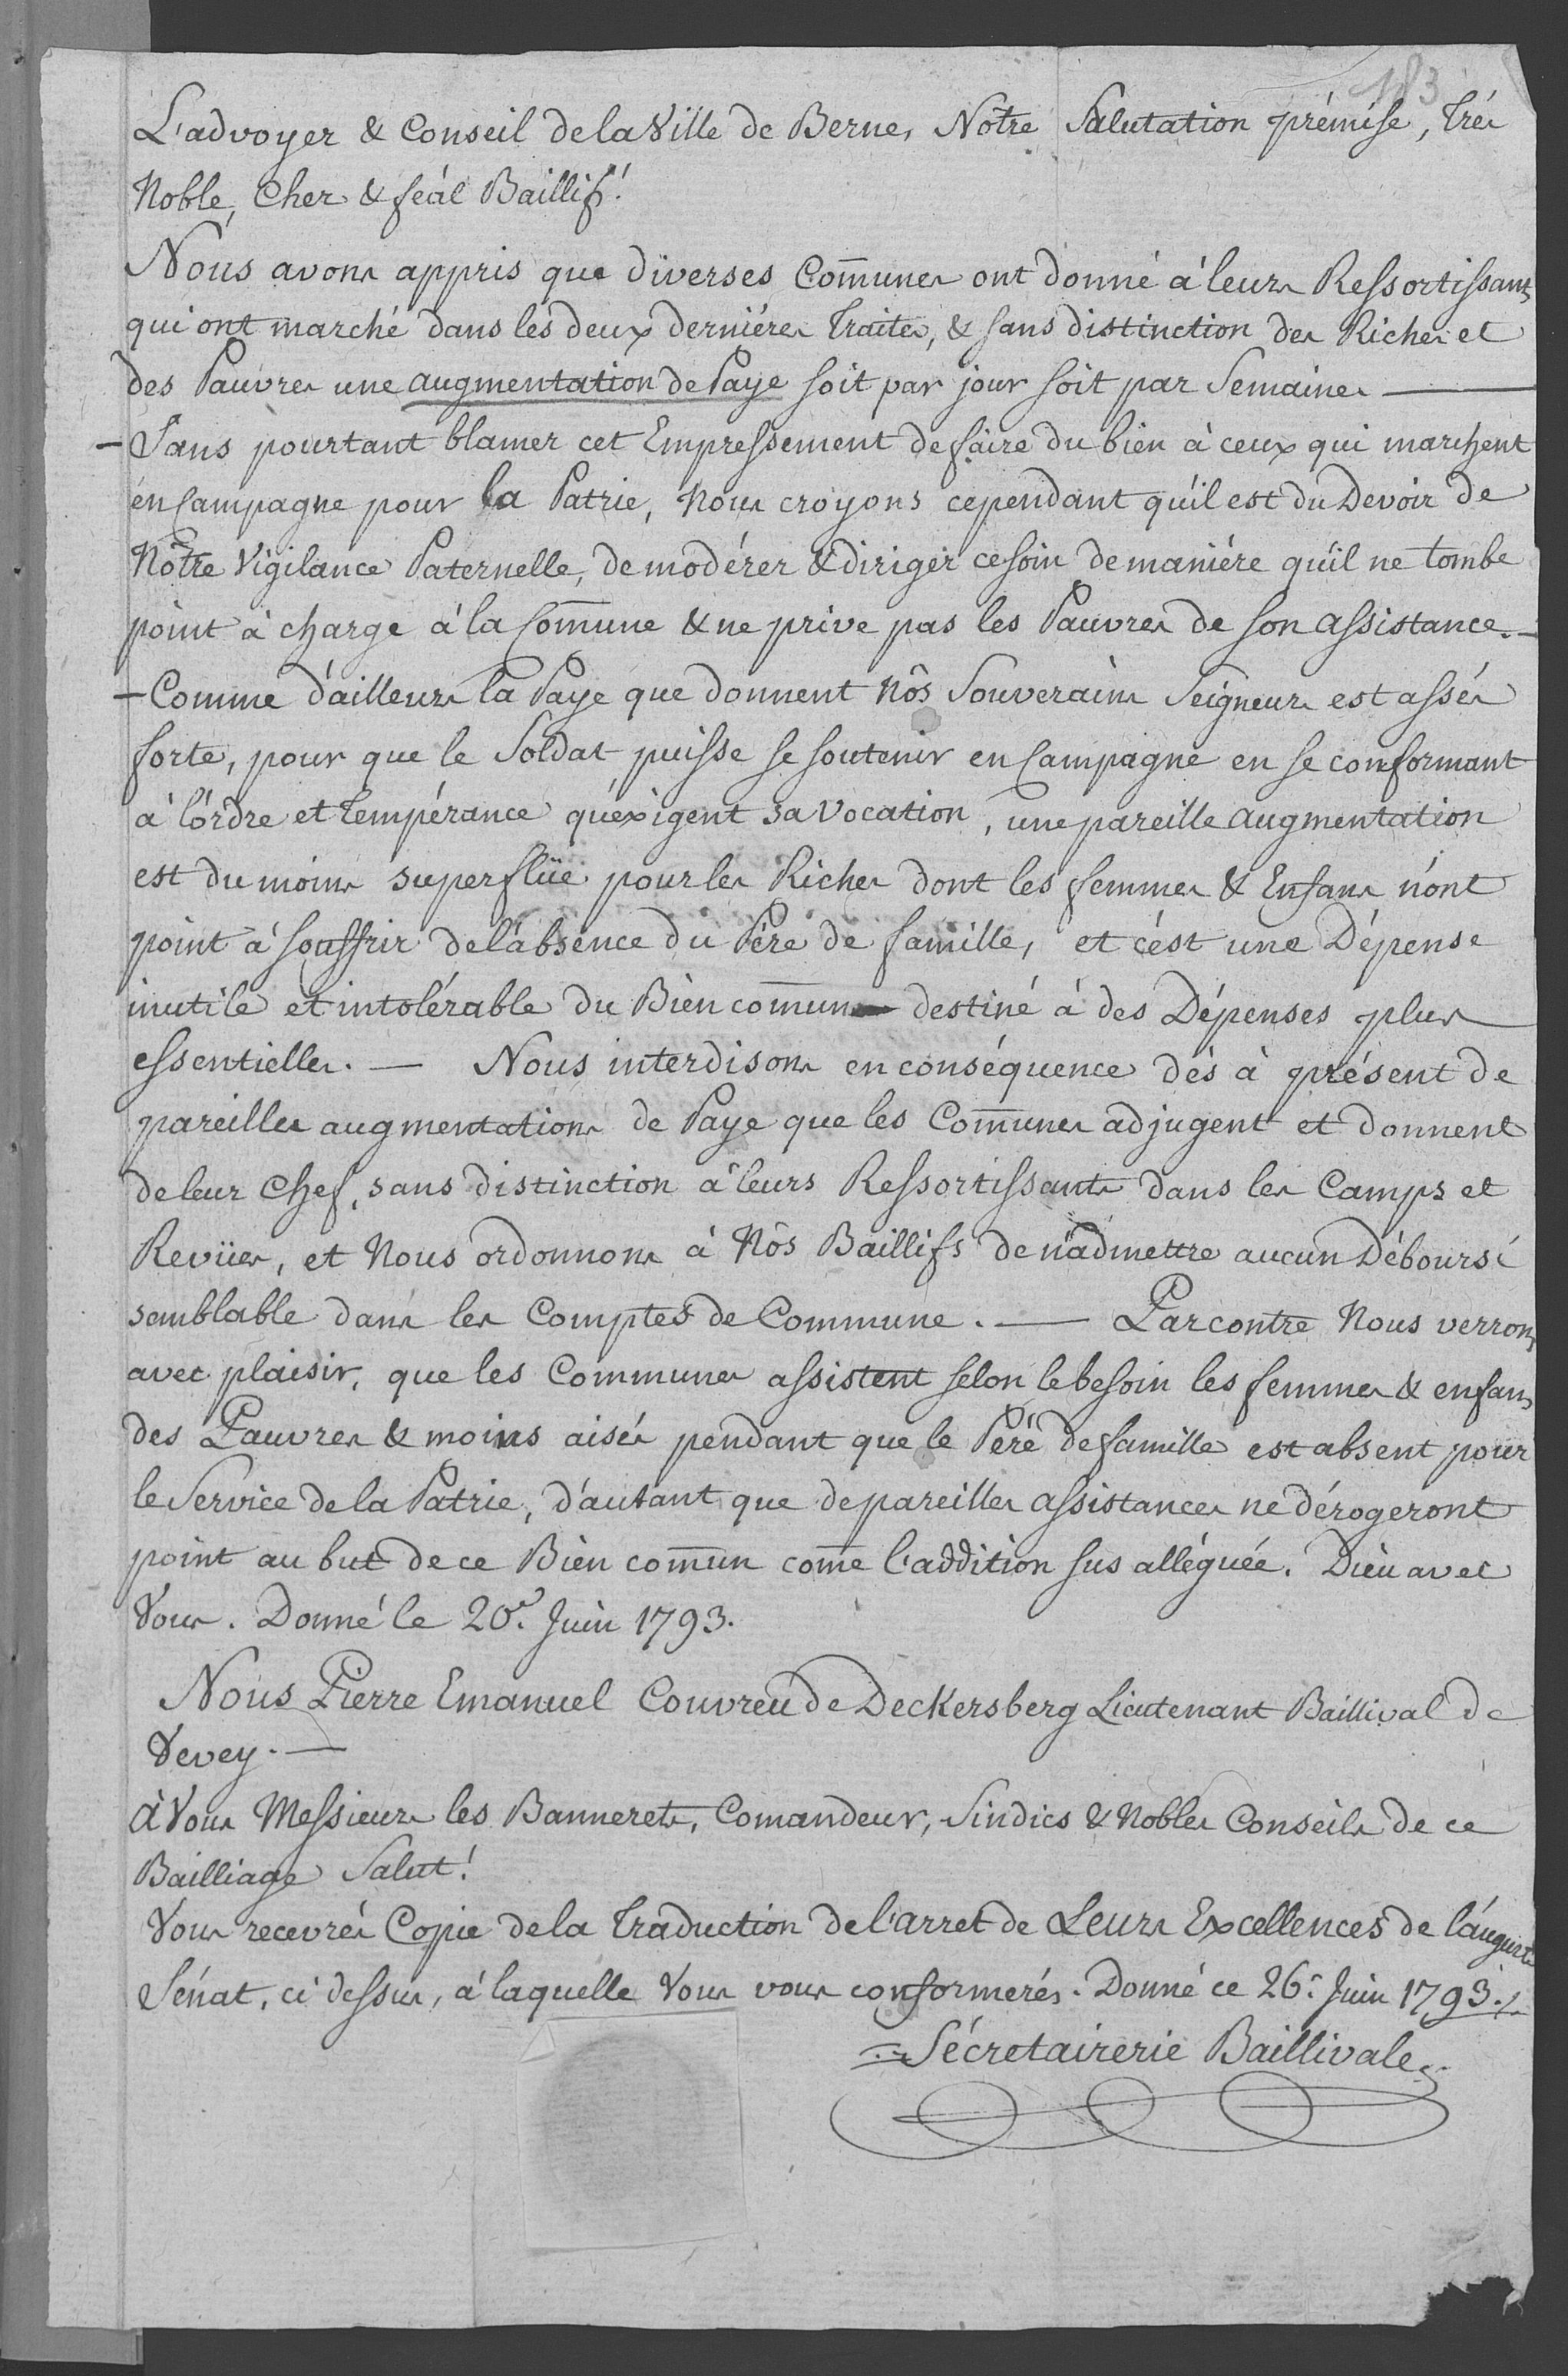 183
L'advoyer & Conseil de la Ville de Berne, Nôtre Salutation prémise, Trés
Noble, Cher & feàl Baillif!
Nous avons appris que diverses Com̄unes ont donné à leurs Ressortissants
qui ont marché dans les deux derniéres Traites, & sans distinction des Riches et
des Pauvres une augmentation de Paye soit par jour soit par Semaines —
— Sans pourtant blamer cet Empressement de faire du bien à ceux qui marchent
en Campagne pour la Patrie, Nous croyons cependant qu'il est du Devoir de
Nôtre Vigilance Paternelle, de modérer & diriger ce soin de maniére qu'il ne tombe
point à charge à la Com̄une & ne prive pas les Pauvres de son assistance. —
— Comme d'ailleurs la Paye que donnent Nôs Souverains Seigneurs est assés
forte, pour que le Soldat puisse se soutenir en Campagne en se conformant
à l'ordre et Tempérance qu'exigent sa Vocation, une pareille augmentation
est du moins superflüe pour les Riches dont les femmes & Enfans n'ont
point à souffrir de l'absence du Pére de famille, et c'est une Dépense
inutile et intolérable du Bien com̄un destiné à des Dépenses plus
essentielles. — Nous interdisons en conséquence dés à présent de
pareilles augmentations de Paye que les Com̄unes adjugent et donnent
de leur Chef, sans distinction à leurs Ressortissants dans les Camps et
Revües, et Nous ordonnons à Nôs Baillifs de n'admettre aucun Déboursé
semblable dans les Comptes de Commune. — Parcontre Nous verrons
avec plaisir, que les Communes assistent selon le besoin les femmes & enfans
des Pauvres & moins aisés pendant que le Pére de famille est absent pour
le Service de la Patrie, d'autant que de pareilles assistances ne dérogeront
point au but de ce Bien com̄un com̄e l'addition sus alléguée. Dieu avec
Vous. Donné le 20e. Juin 1793.
Nous Pierre Emanuel Couvreu de Deckersberg Lieutenant Baillival de
Vevey. —
à Vous Messieurs les Bannerets, Comandeur, Sindics & Nobles Conseils de ce
Bailliage Salut!
Vous recevrés Copie de la Traduction de l'arret de Leurs Excellences de l'auguste
Sénat, ci dessus, à laquelle Vous vous conformerés. Donné ce 26e. Juin 1793.
Sécretairerie Baillivale